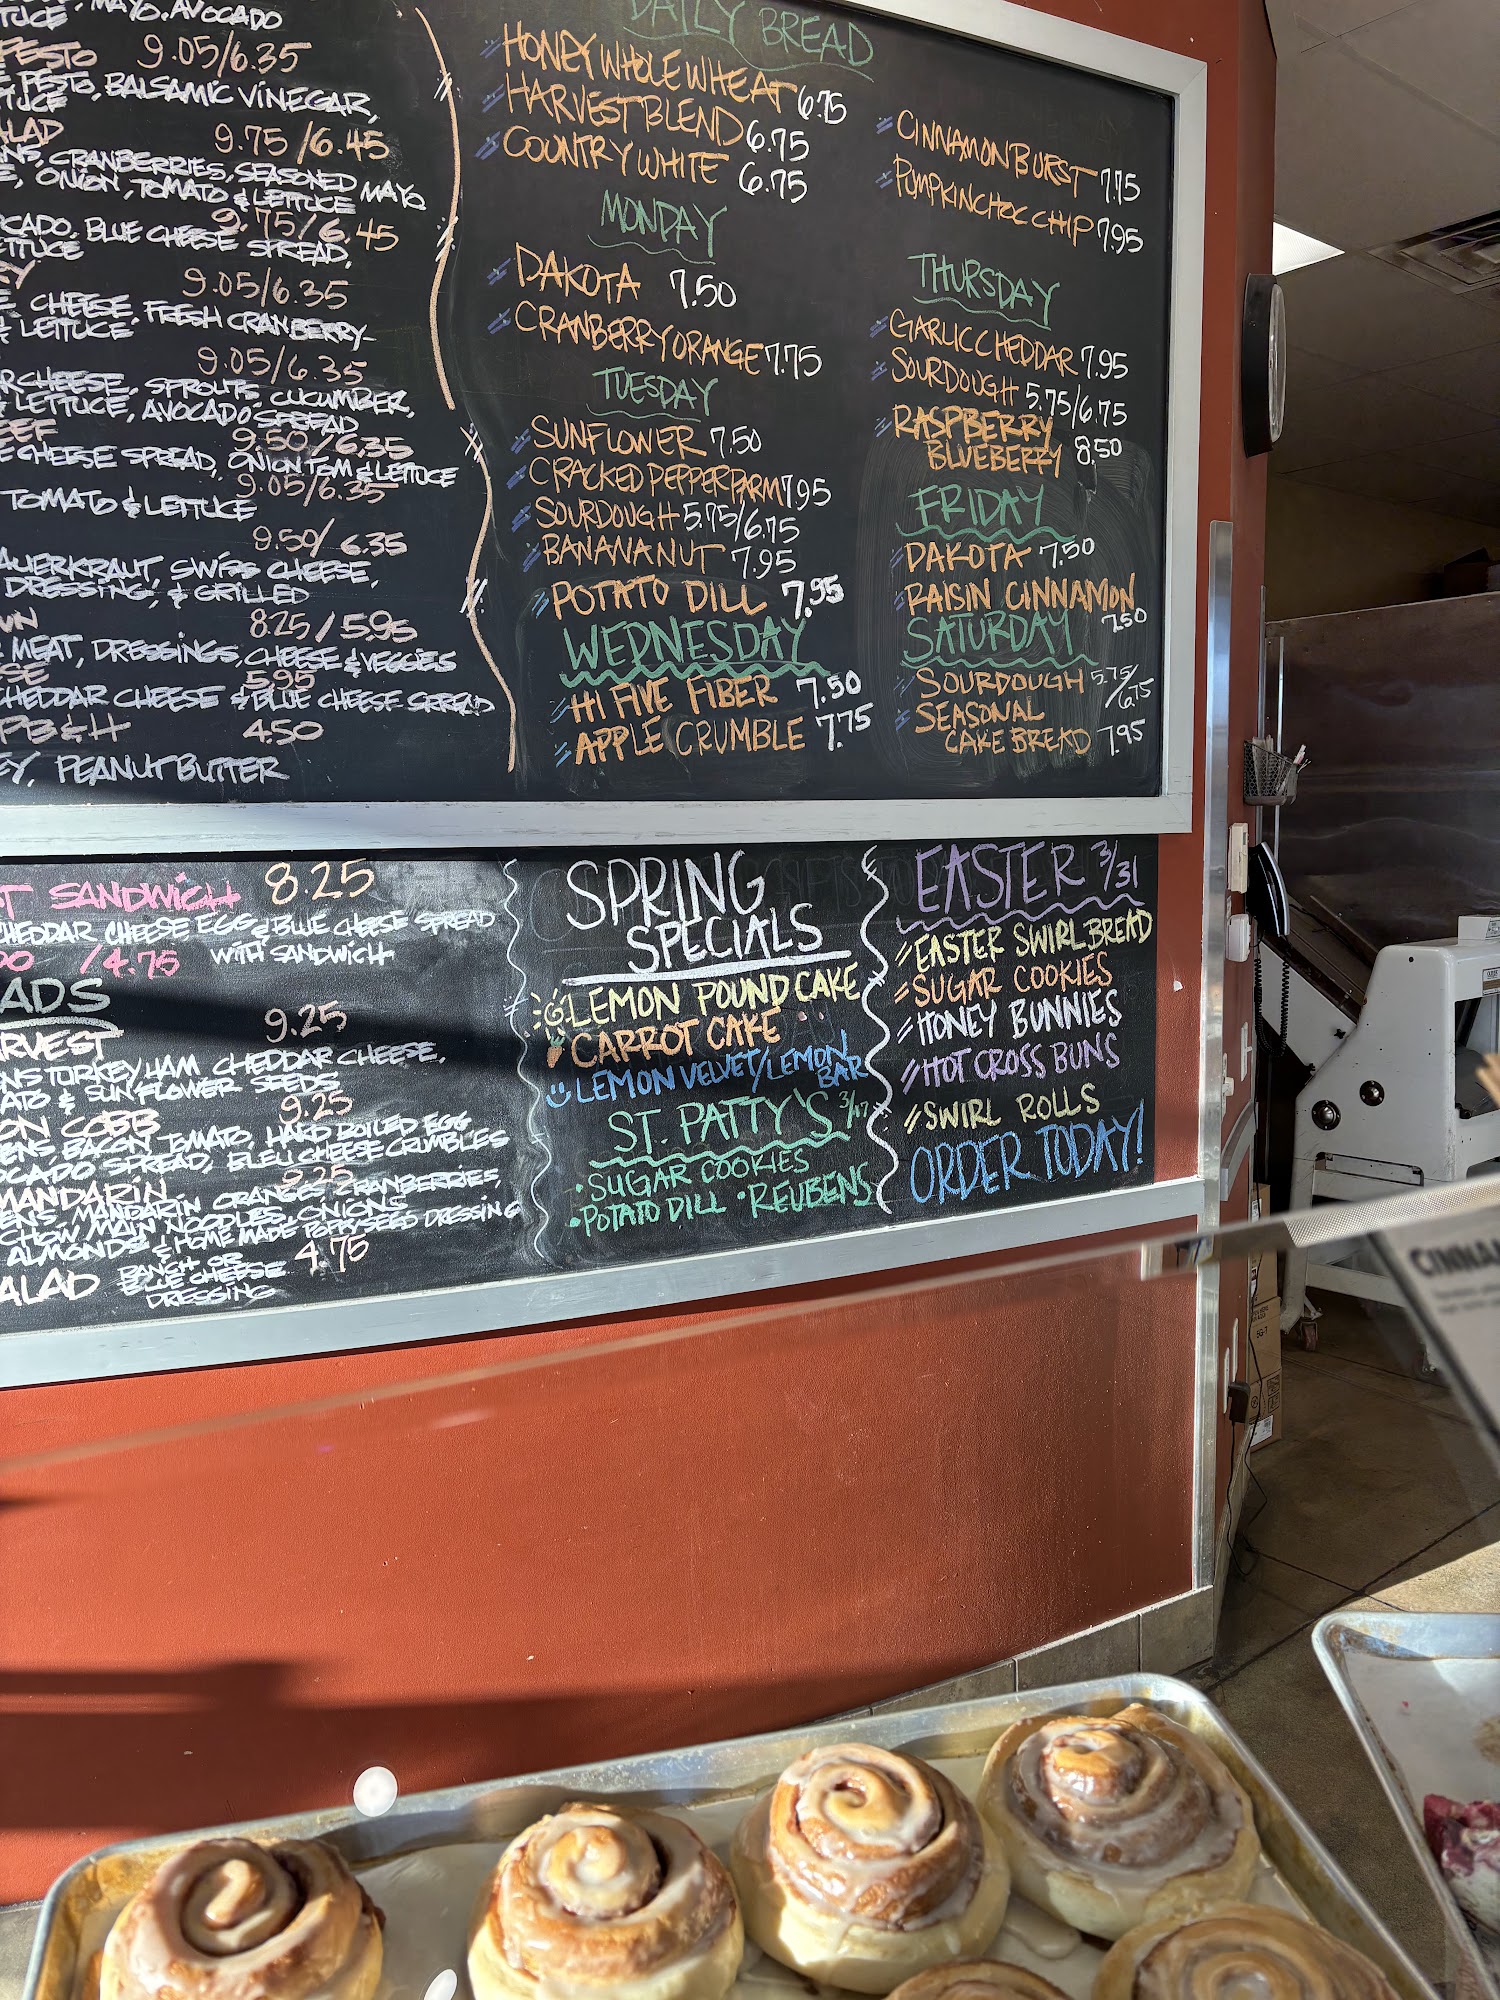 TUCE, MAYO, AVOCADO
PESTO 9.05/6.35
PESTO, BALSAMIC VINEGAR,
TUCE
ALAD 9.75/6.45
NS, CRANBERRIES, SEASONED MAYO
E, ONION, TOMATO & LETTUCE
9.75/6.45
CADO, BLUE CHEESE SPREAD,
ETTUCE
EY 9.05/6.35
E CHEESE, FRESH CRANBERRY-
& LETTUCE
9.05/6.35
R CHEESE, SPROUTS, CUCUMBER,
& LETTUCE, AVOCADO SPREAD
EEF 9.50/6.35
E CHEESE SPREAD, ONION TOM & LETTUCE
9.05/6.35
TOMATO & LETTUCE
9.50/6.35
AUERKRAUT, SWISS CHEESE,
DRESSING, & GRILLED
WN 8.25/5.95
MEAT, DRESSINGS, CHEESE & VEGGIES
ESE 5.95
CHEDDAR CHEESE & BLUE CHEESE SPREAD
PB&H 4.50
EY, PEANUT BUTTER
DAILY BREAD
HONEY WHOLE WHEAT 6.75
HARVEST BLEND 6.75
COUNTRY WHITE 6.75
MONDAY
DAKOTA 7.50
CRANBERRY ORANGE 7.75
TUESDAY
SUNFLOWER 7.50
CRACKED PEPPER PARM 7.95
SOURDOUGH 5.75/6.75
BANANA NUT 7.95
POTATO DILL 7.95
WEDNESDAY
HI FIVE FIBER 7.50
APPLE CRUMBLE 7.75
CINNAMON BURST 7.75
PUMPKIN CHOC CHIP 7.95
THURSDAY
GARLIC CHEDDAR 7.95
SOURDOUGH 5.75/6.75
RASPBERRY
BLUEBERRY 8.50
FRIDAY
DAKOTA 7.50
RAISIN CINNAMON
7.50
SATURDAY
SOURDOUGH 5.75/6.75
SEASONAL
CAKE BREAD 7.95
T SANDWICH 8.25
CHEDDAR CHEESE EGG & BLUE CHEESE SPREAD
DO /4.75 WITH SANDWICH
ADS
RVEST 9.25
NS TURKEY, HAM CHEDDAR CHEESE,
ATO & SUNFLOWER SEEDS
ON COBB 9.25
ENS, BACON, TOMATO, HARD BOILED EGG
OCADO SPREAD, BLEU CHEESE CRUMBLES
MANDARIN 9.25
ENS, MANDARIN ORANGES, CRANBERRIES,
CHOW MAIN NOODLES, ONIONS
ALMONDS & HOME MADE POPPYSEED DRESSING
ALAD RANCH OR 4.75
BLUE CHEESE
DRESSING
SPRING
SPECIALS
LEMON POUND CAKE
CARROT CAKE
LEMON VELVET/LEMON
BAR
ST. PATTY'S 3/17
• SUGAR COOKIES
• POTATO DILL • REUBENS
EASTER 3/31
EASTER SWIRL BREAD
SUGAR COOKIES
HONEY BUNNIES
HOT CROSS BUNS
SWIRL ROLLS
ORDER TODAY!
CINNA